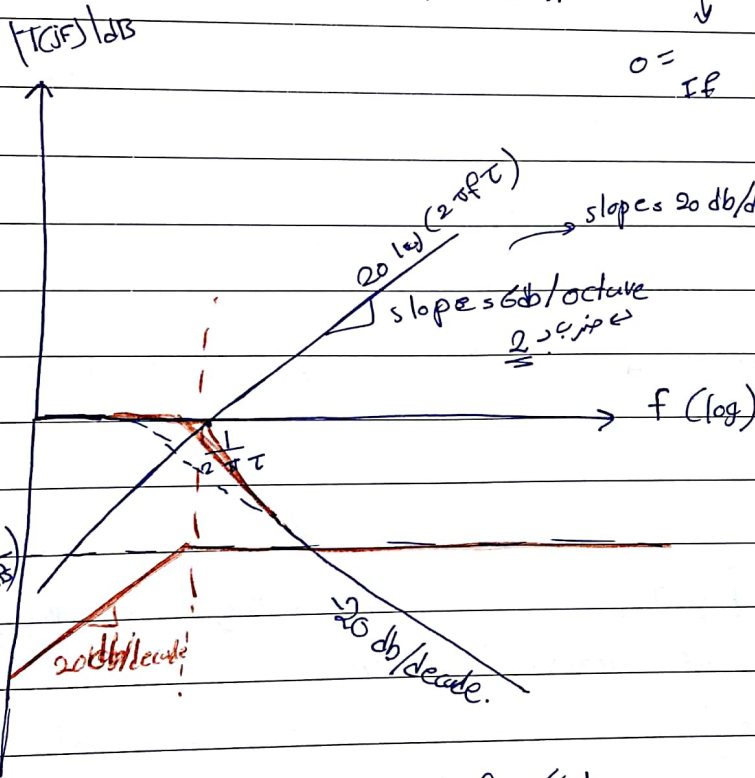 |T(jf)|dB
0 =
If
20 log (2πfτ)
→ slope = 20 db/d
slope = 6db/octave
2
f (log)
1
2πτ
20db/decade
-20 db/decade.